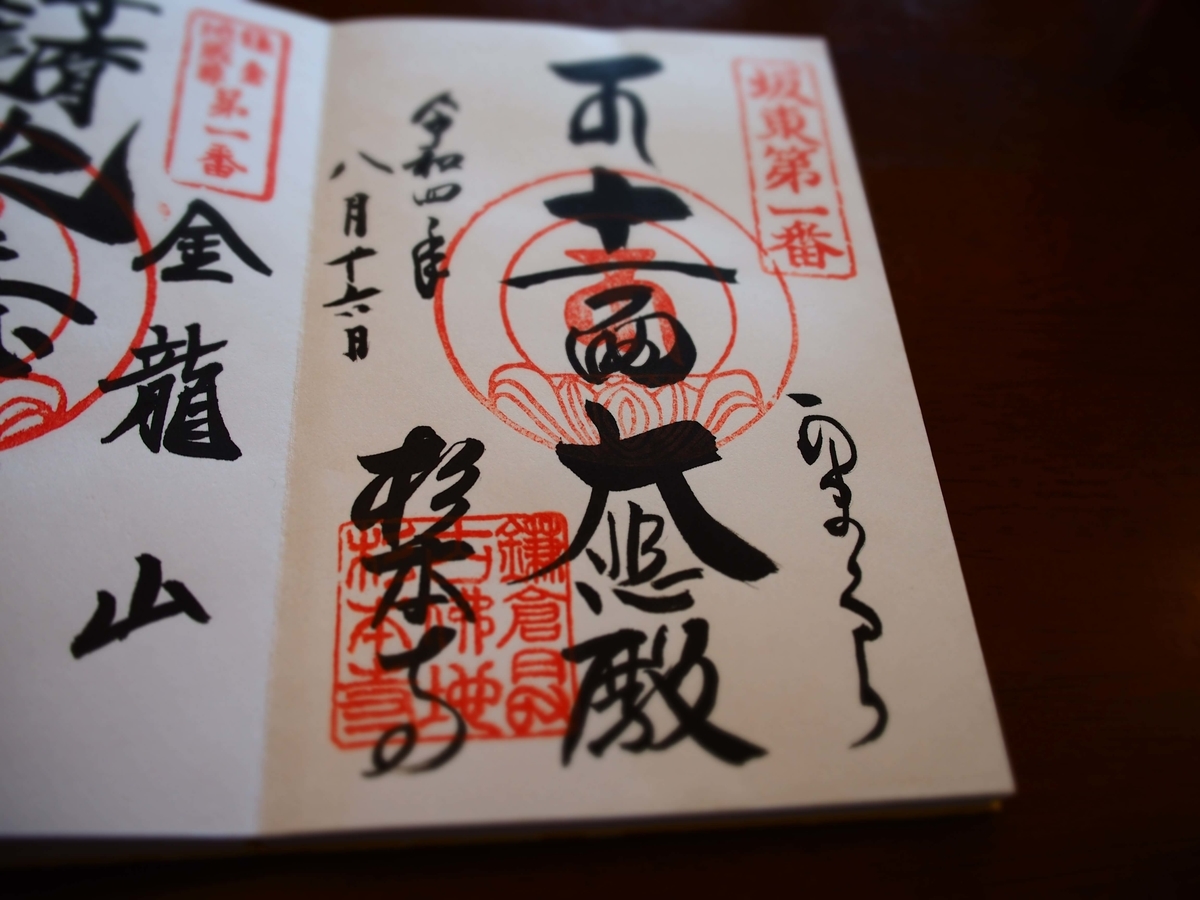 坂東第一番
かまくら
十一面大悲殿
令和四年
八月十六日
杉本寺
鎌倉最
古佛地
杉本寺
鎌倉
地蔵尊
第一番
金龍山